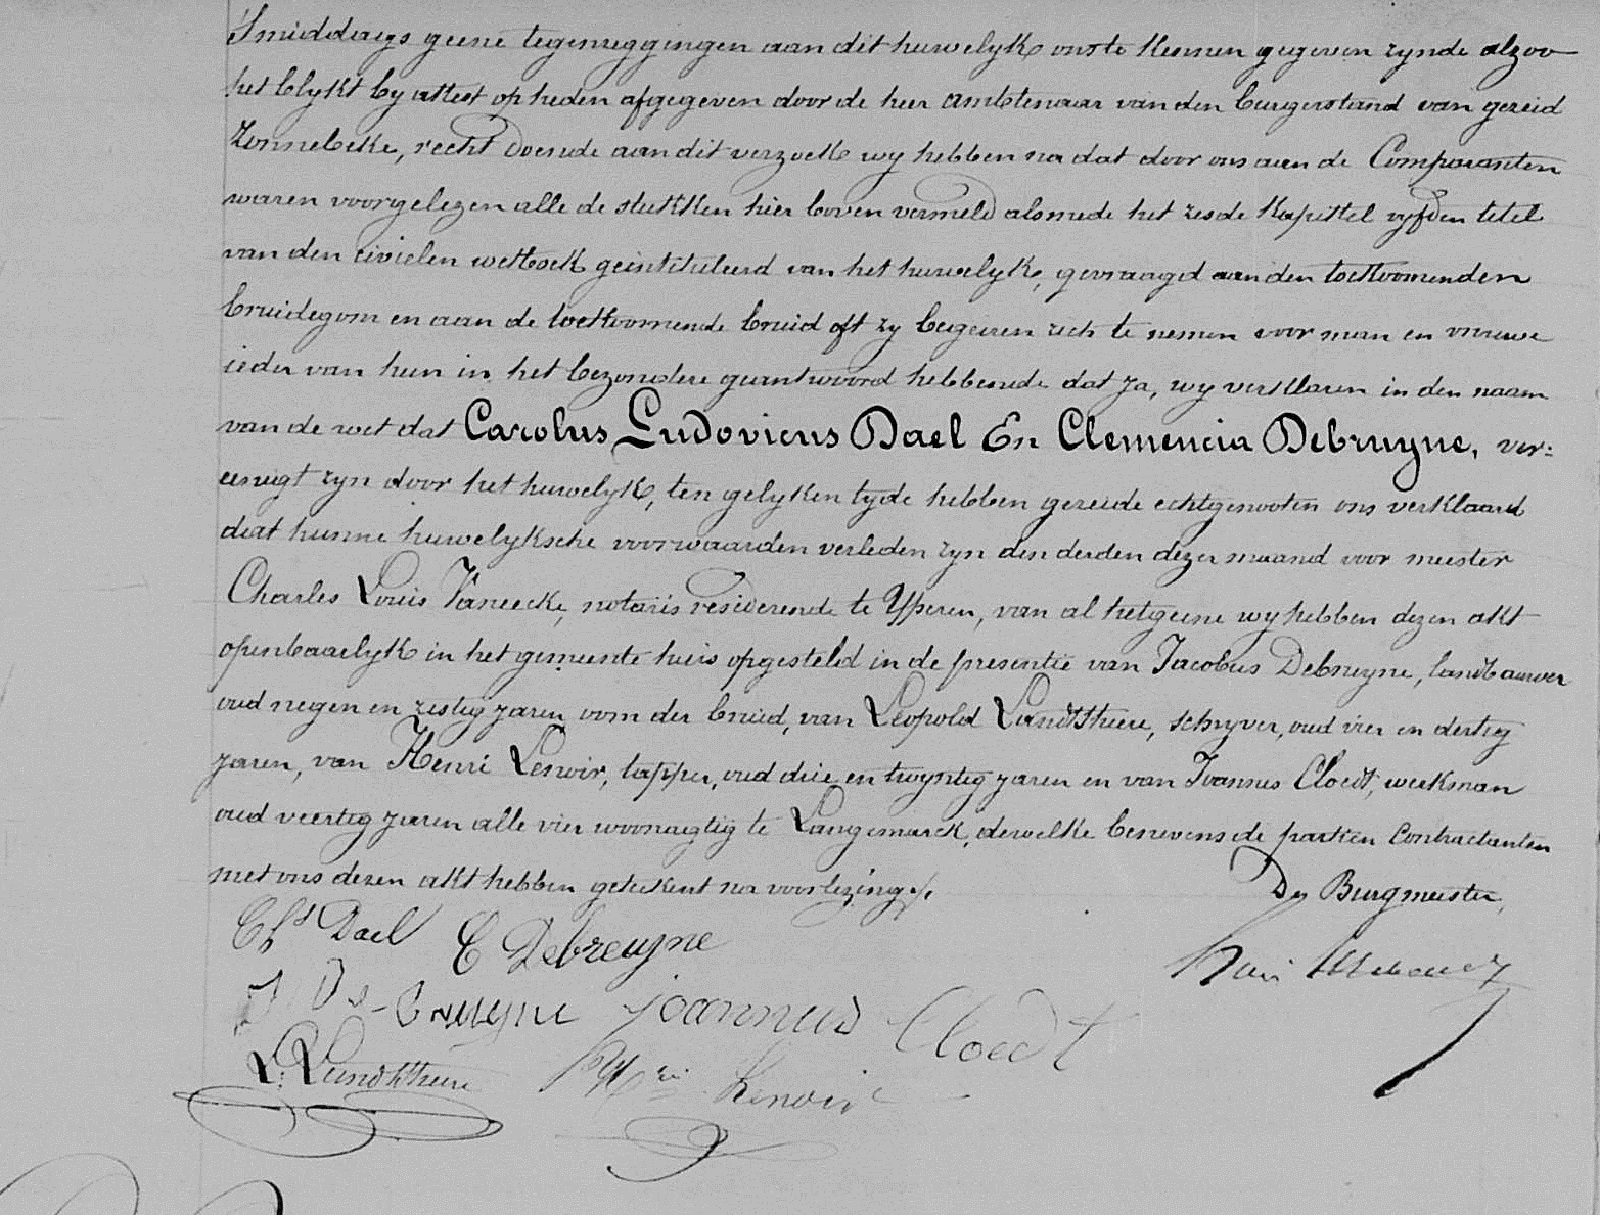 Smiddags geene tegenzeggingen aan dit huwelyk ons te kennen gegeven zynde alzoo
het blykt by attest op heden afgegeven door de heer ambtenaar van den burgerstand van gezeid
Zonnebeke, recht doende aan dit verzoek wy hebben na dat door ons aan de Comparanten
waren voorgelezen alle de stukken hier boven vermeld alsmede het zesde kapittel vyfden titel
van den civielen wetboek geintituleerd van het huwelyk, gevraagd aan den toekomenden
bruidegom en aan de toekomende bruid oft zy begeeren zich te nemen voor man en vrouwe
ieder van hun in het bezondere geantwoord hebbende dat ja, wy verklaren in den naam
van de wet dat Carolus Ludovicus Dael En Clemencia Debruyne, ver:
eenigt zyn door het huwelyk, ten gelyken tyde hebben gezeide echtgenooten ons verklaard
dat hunne huwelyksche voorwaarden verleden zyn den derden dezer maand voor meester
Charles Louis Vaneecke, notaris residerende te Yperen, van al hetgeene wy hebben dezen akt
openbaarlyk in het gemeente huis opgesteld in de presentie van Jacobus Debruyne, landbauwer
oud negen en zestig jaren oom der bruid, van Léopold Lundtthiere, schryver, oud vier en dertig
jaren, van Henri Lenoir, tapper, oud drie en twyntig jaren en van Joannes Cloedt, werkman
oud veertig jaren alle vier woonagtig te Langemarck, dewelke benevens de partien contractanten
met ons dezen akt hebben geteekent na voorlezing./.
Den Burgmeester,
Chs Dael C Debreuyne
J De-bruyne joannus Cloedt
L. Lundtthiere Lenoir